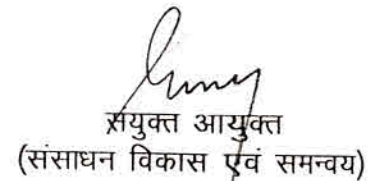 संयुक्त आयुक्त
(संसाधन विकास एवं समन्वय)